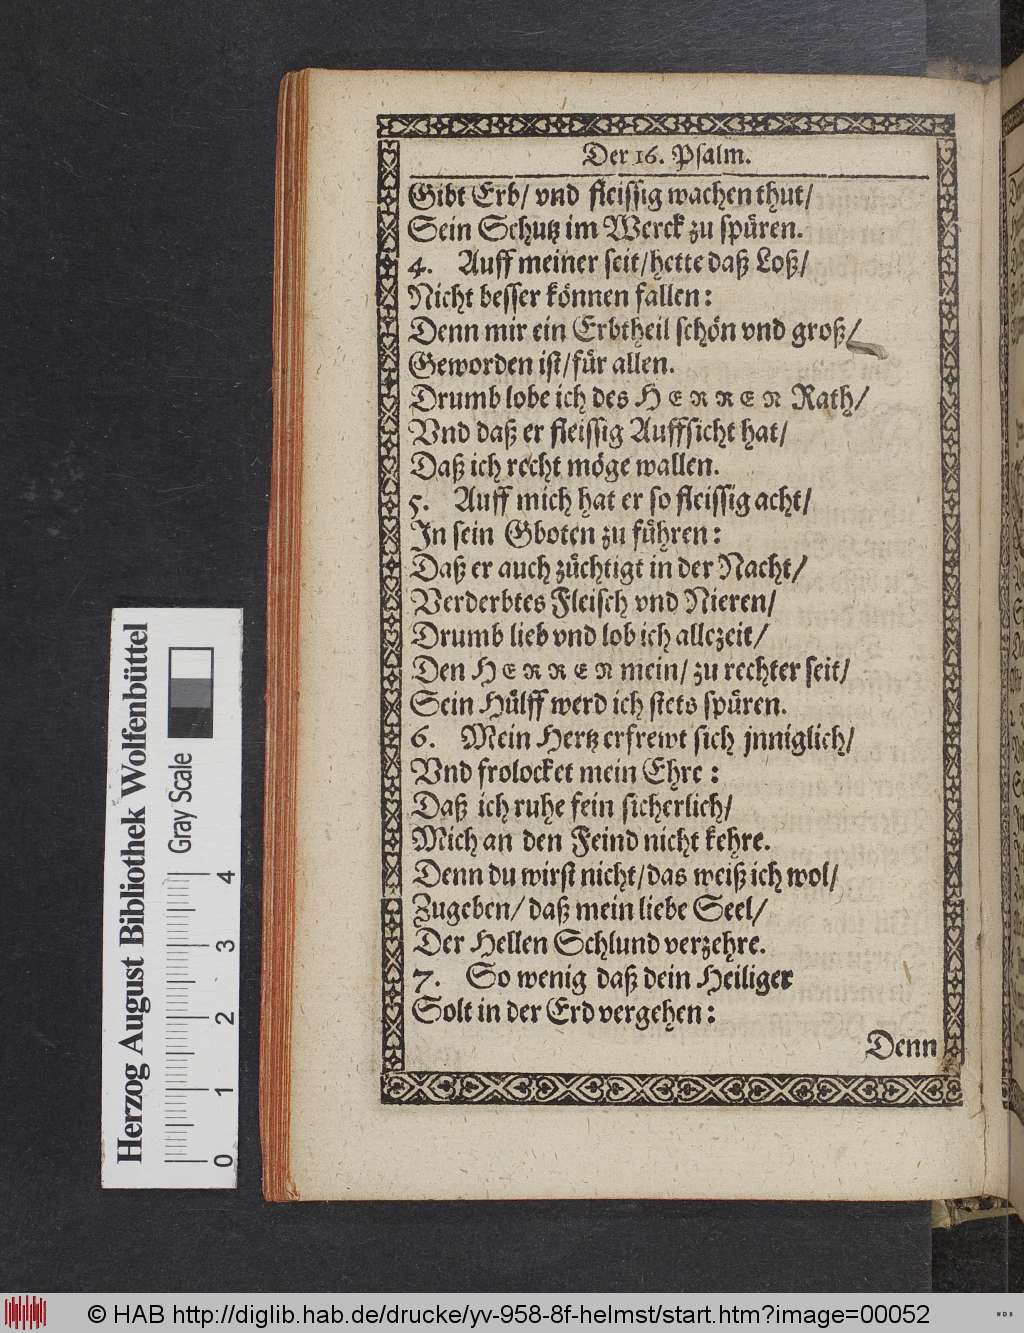 Der 16. Psalm.
Gibt Erb/ vnd fleissig wachen thut/
Sein Schutz im Werck zu spüren.
4. Auff meiner seit/hette daß Loß/
Nicht besser können fallen:
Denn mir ein Erbtheil schön vnd groß/
Geworden ist/für allen.
Drumb lobe ich des HERREN Rath/
Vnd daß er fleissig Auffsicht hat/
Daß ich recht möge wallen.
5. Auff mich hat er so fleissig acht/
In sein Gboten zu führen:
Daß er auch züchtigt in der Nacht/
Verderbtes Fleisch vnd Nieren/
Drumb lieb vnd lob ich allezeit/
Den HERREN mein/ zu rechter seit/
Sein Hülff werd ich stets spüren.
6. Mein Hertz erfrewt sich jnniglich/
Vnd frolocket mein Ehre:
Daß ich ruhe fein sicherlich/
Mich an den Feind nicht kehre.
Denn du wirst nicht/das weiß ich wol/
Zugeben/ daß mein liebe Seel/
Der Hellen Schlund verzehre.
7. So wenig daß dein Heiliger
Solt in der Erd vergehen:
Denn
Herzog August Bibliothek Wolfenbüttel
Gray Scale
0 1 2 3 4
© HAB http://diglib.hab.de/drucke/yv-958-8f-helmst/start.htm?image=00052